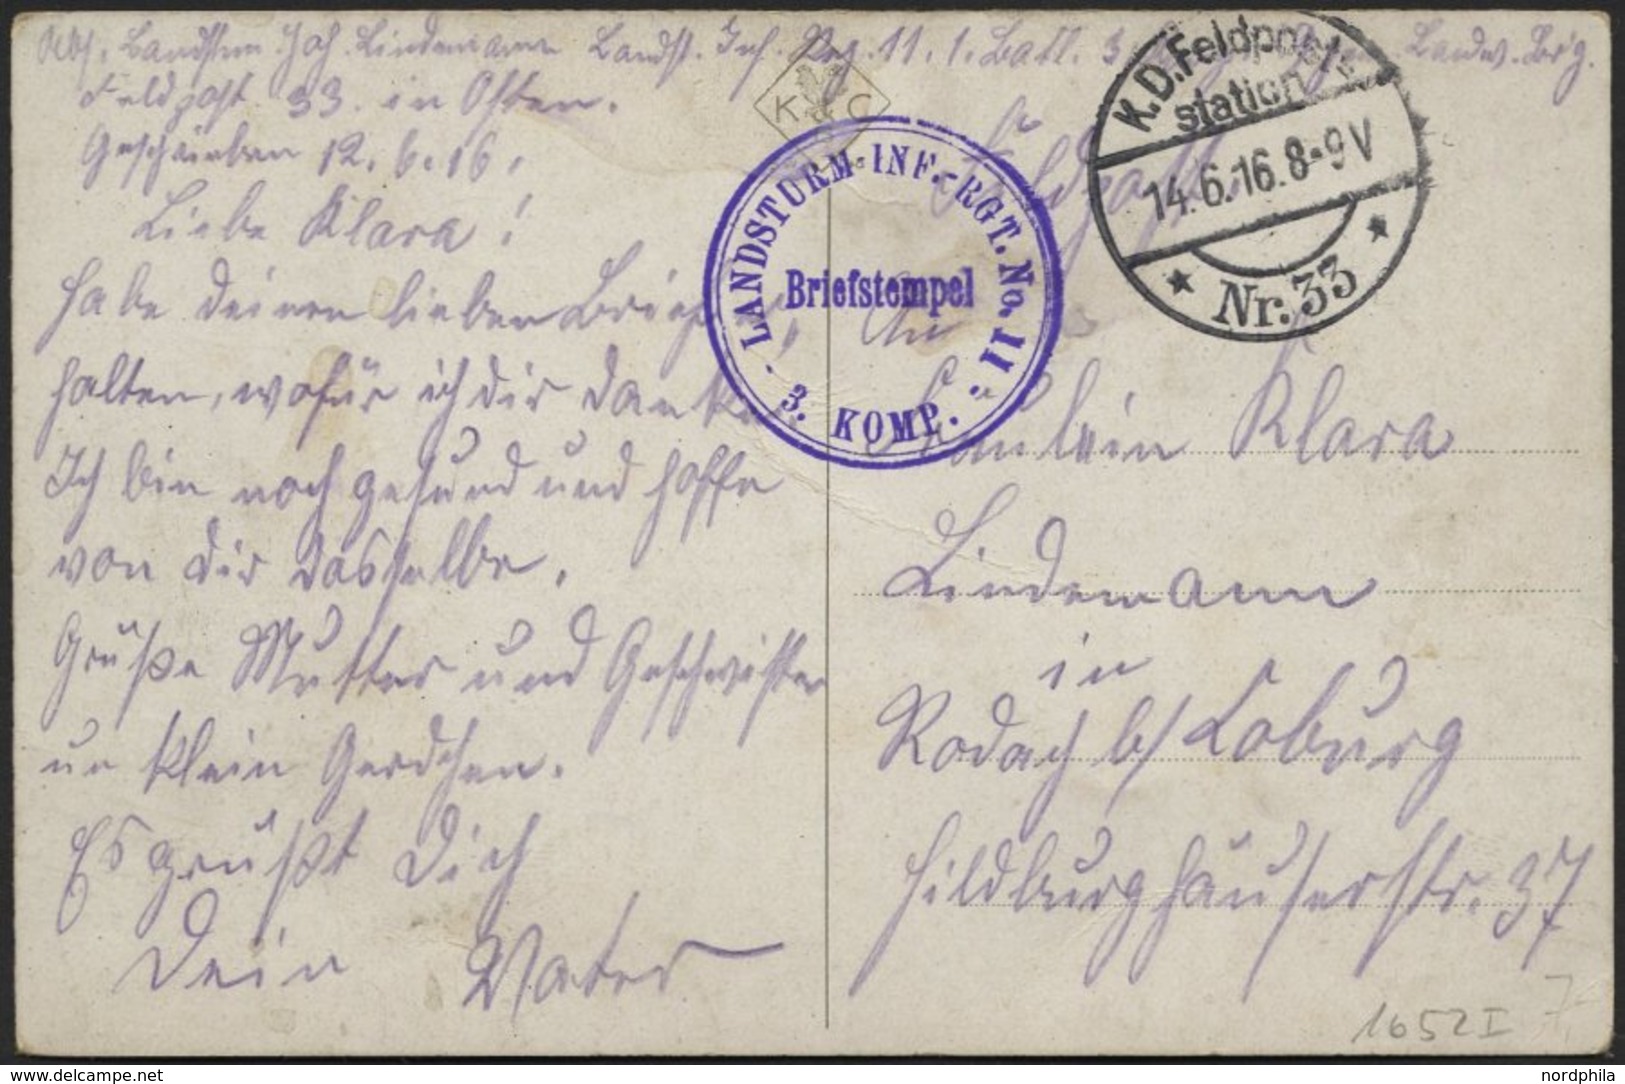 Abs. Landstm. Joh. Lindemann Landst. Inf. Reg. 11. 1. Batl. 3 Landw. Brig.
Feldpost 33. in Osten.
Geschrieben 12.6.16.
Liebe Klara!
Habe deinen lieben Brief
halten, wofür ich dir danke.
Ich bin noch gesund und hoffe
von dir dasselbe.
Grüße Mutter und Geschwister
un klein Gerdchen.
Es grüßt Dich
Dein Vater
K C
LANDSTURM-INF.-RGT. No. 11.
Briefstempel
3. KOMP.
K.D. Feldpost-
station
14.6.16. 8-9 V
* Nr. 33 *
Feldpost.
An
Fräulein Klara
Lindemann
in
Rodach b/ Coburg
Hildburghäuserstr. 37
1652 I
nordphila